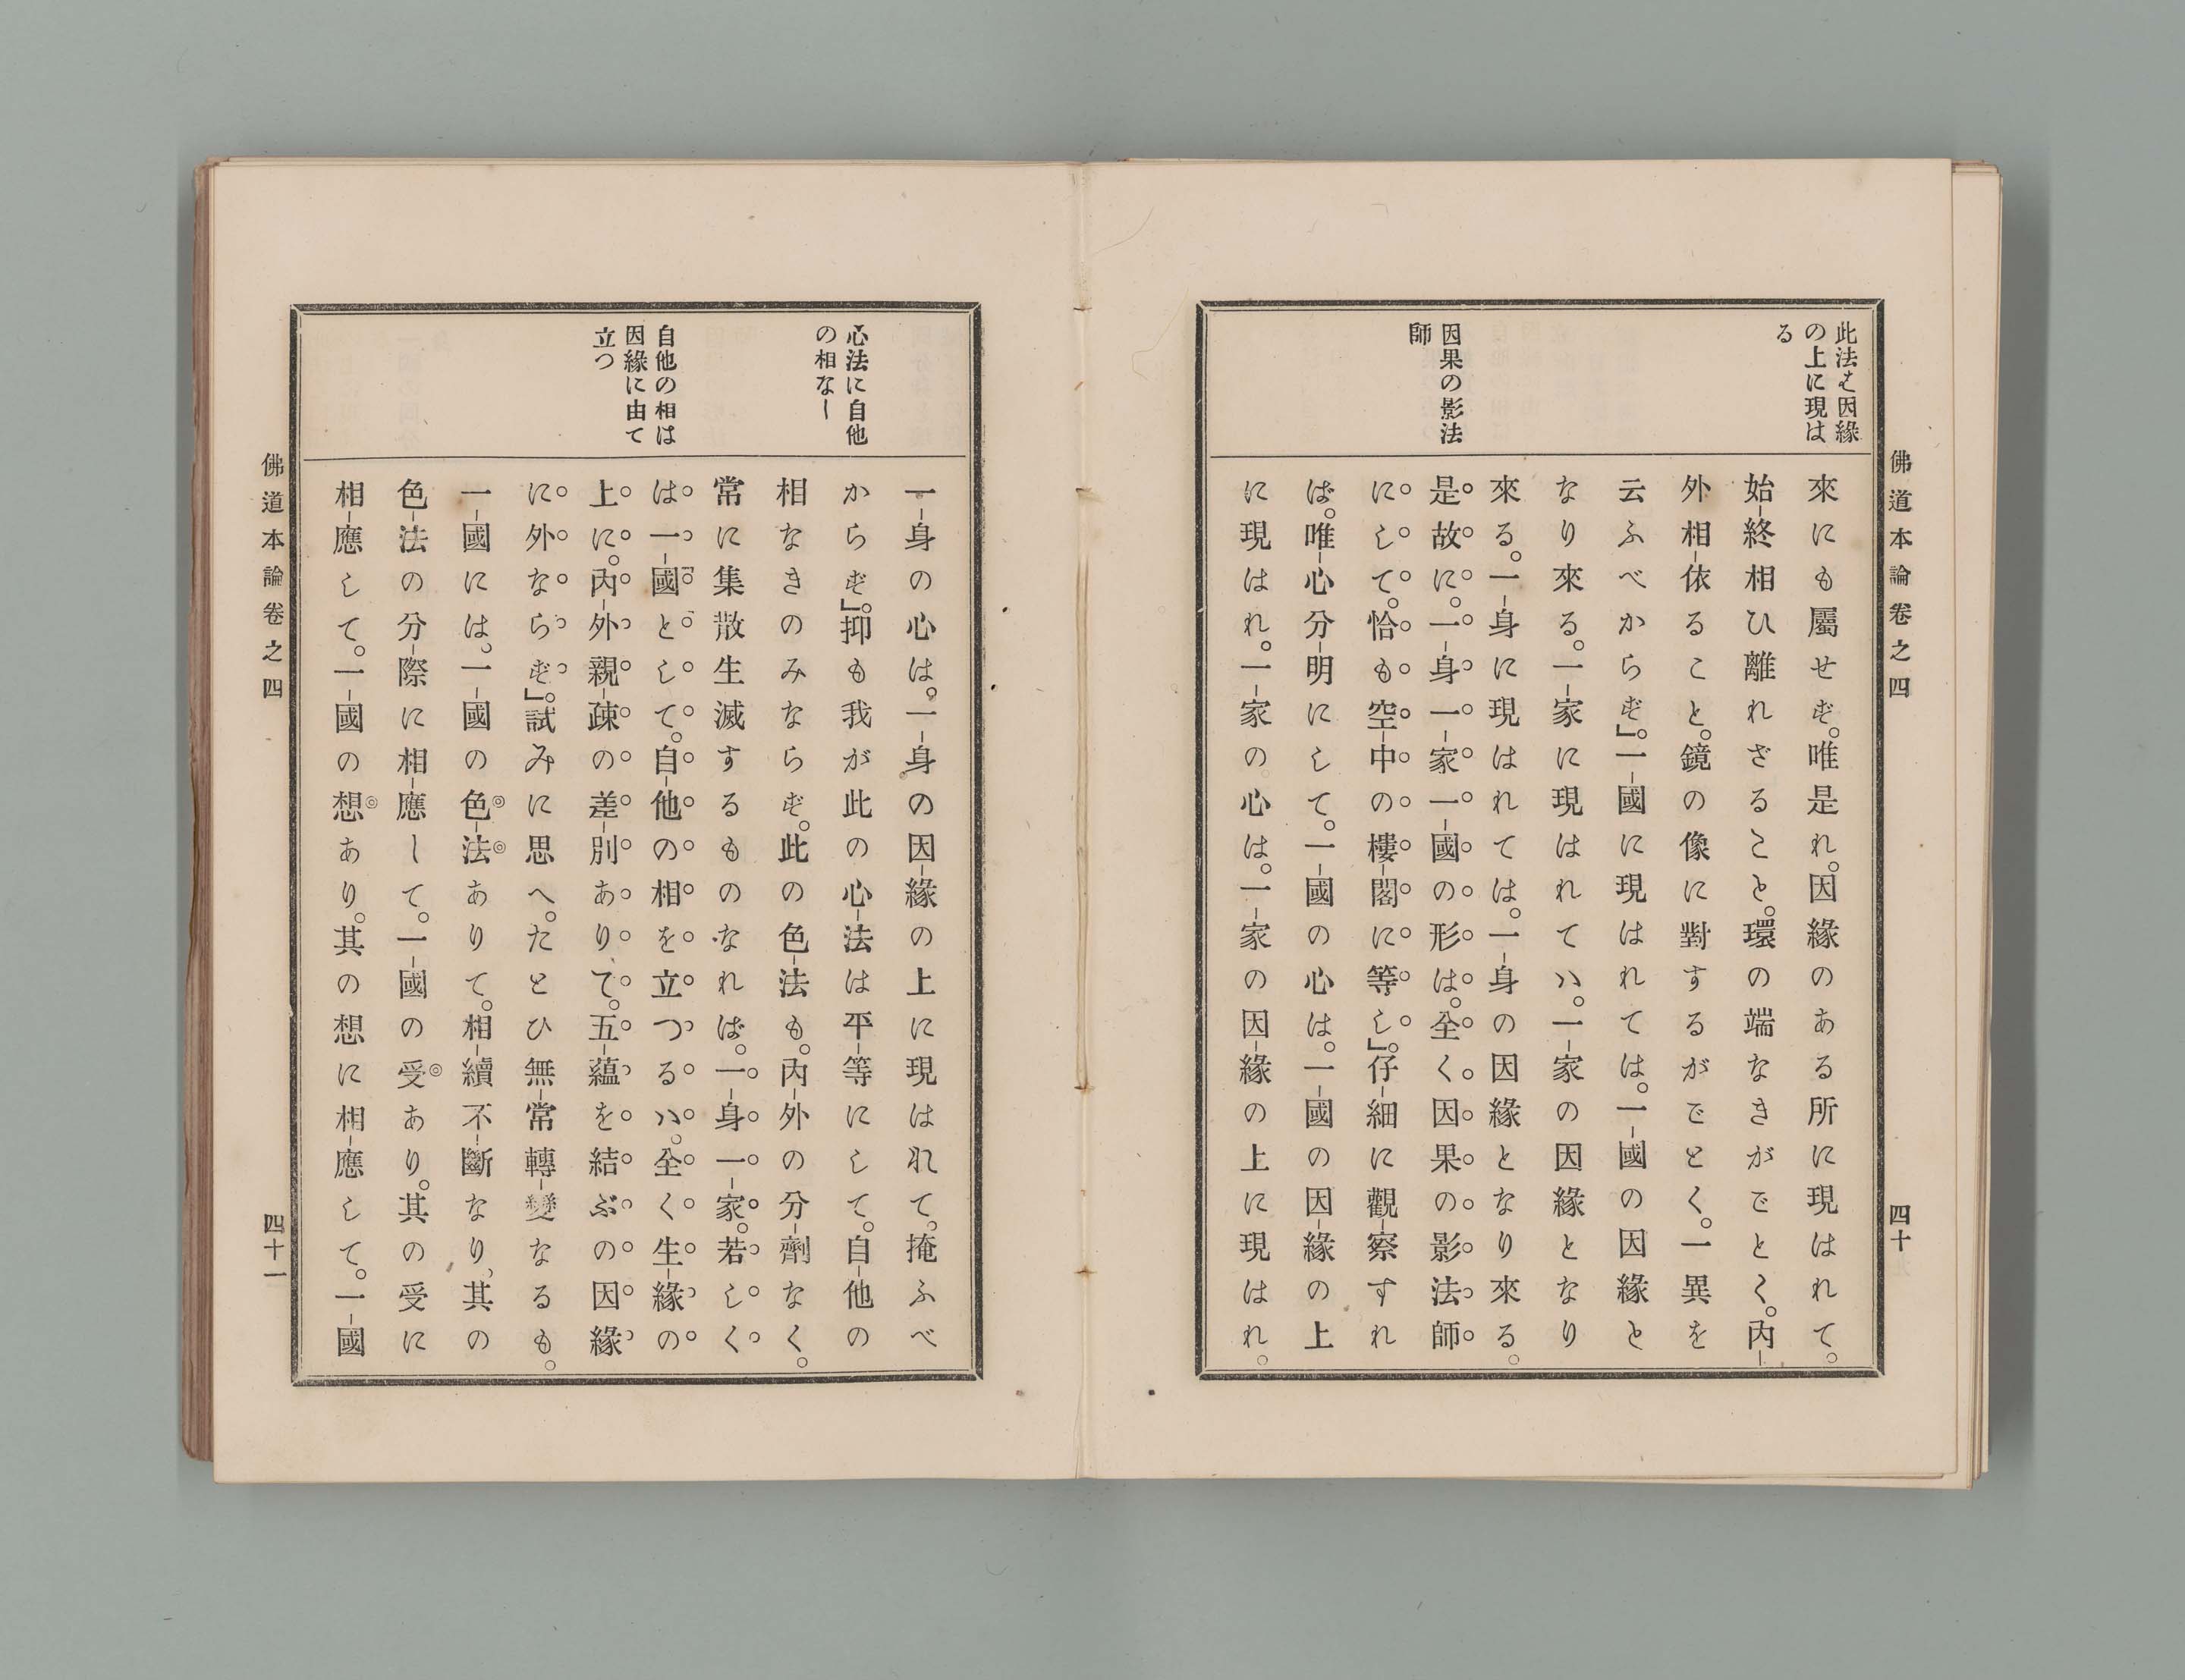 佛道本論卷之四
四十
此法は因緣
の上に現は
る
因果の影法
師
來にも屬せず。唯是れ。因緣のある所に現はれて。
始–終相ひ離れざること。環の端なきがごとく。內–
外相–依ること。鏡の像に對するがごとく。一異を
云ふべからず」。一–國に現はれては。一–國の因緣と
なり來る。一–家に現はれてハ。一–家の因緣となり
來る。一–身に現はれては。一–身の因緣となり來る。
是故に。一–身一–家一–國の形は。全く因果の影法師
にして。恰も空–中の樓–閣に等し」。仔–細に觀–察すれ
ば。唯–心分–明にして。一–國の心は。一–國の因–緣の上
に現はれ。一–家の心は。一–家の因–緣の上に現はれ。
心法に自他
の相なし
自他の相は
因緣に由て
立つ
一–身の心は。一–身の因–緣の上に現はれて。掩ふべ
からず」。抑も我が此の心–法は平–等にして。自–他の
相なきのみならず。此の色–法も。內–外の分–劑なく。
常に集散生滅するものなれば。一–身一–家。若しく
は一–國として。自–他の相を立つるハ。全く生–緣の
上に。內–外親–疎の差–別ありて。五–蘊を結ぶの因緣
に外ならず」。試みに思へ。たとひ無–常轉–變なるも。
一–國には。一–國の色–法ありて。相–續不–斷なり、其の
色–法の分–際に相–應して。一–國の受あり。其の受に
相–應して。一–國の想あり。其の想に相–應して。一–國
佛道本論卷之四
四十一